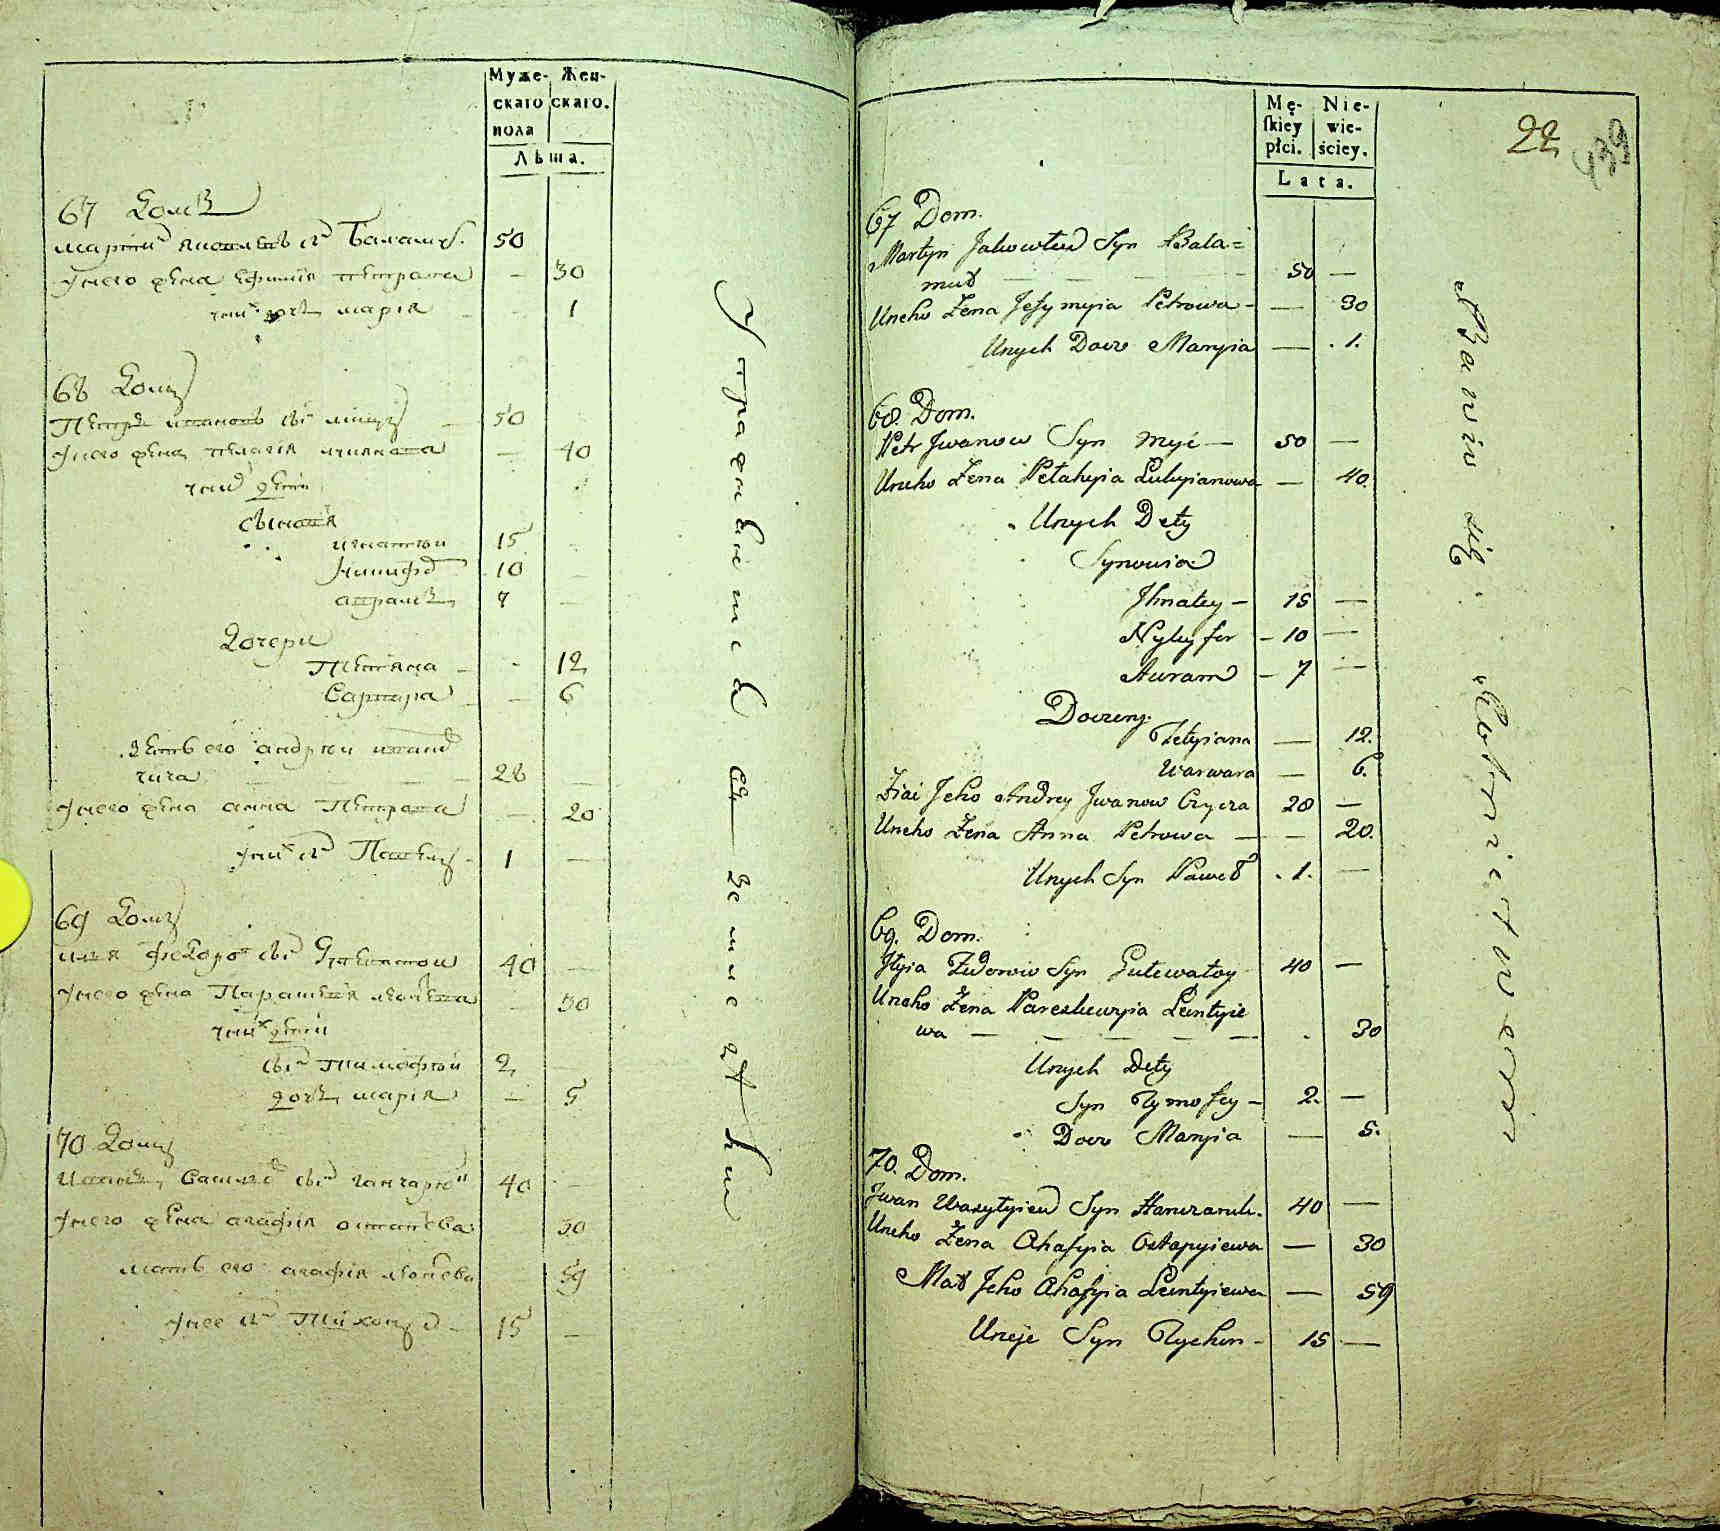 Муже-
скаго
пола
Жен-
скаго.
Лѣта.
67 Домъ
Мартинъ Яковлевъ сн Баламут. 50
У него жена Ефимія Петрова — 30
У них дочь Марія — 1
68 Домъ
Петръ Ивановъ сн 50
У него жена Пелагія — 40
У них дети
Сыновя
Игнатей 15
10
Аврамъ 7 —
Дочери
Тетяна — 12
Варвара — 6
Зять его Андрей Иванов
Чича 28
У него жена Анна Петрова — 20
У них сн Павелъ 1 —
69 Домъ
Илия Федоров сн 40 —
У него жена Параскевія — 30
У них дети
Сн Тимофей 2 —
дочь Марія — 5
70 Домъ
Иванъ Василев сн 40 —
У него жена Агафія Остапева 30
Мать его Агафія 59
У нее сн Тихон 15 —
Упражняется въ земледелии
Mę-
skiey
płci.
Nie-
wie-
ściey.
Lata.
22
439
67 Dom.
Martyn Jakowlew Syn Bala=
mut — 50 —
Uneho Żena Jefymyia Petrowa — — 30
Unych Docz Maryia — 1.
68. Dom.
Petr Jwanow Syn Myć — 50 —
Uneho Żena Pełahyia Łukyianowa — 40.
Unych Dety
Synowia
Jhnatey — 15 —
Nykyfor — 10 —
Awram — 7 —
Doczery.
Tetyiana — 12.
Warwara — 6.
Ziat Jeho Andrey Jwanow Czycza 28 —
Uneho Żena Anna Petrowa — — 20.
Unych Syn Paweł . 1. —
69. Dom.
Jłyia Fedorow Syn Hulewatoy 40 —
Uneho Żena Pareskewyia Leontyie
wa — — — — — . 30
Unych Dety
Syn Tymofey — 2. —
Docz Maryia — 5.
70. Dom.
Jwan Wasylyiew Syn Hanczaruk. 40 —
Uneho Żena Ahafyia Ostapyiewa — 30
Mat Jeho Ahafyia Leontyiewa — 59
Uneje Syn Tychon — 15 —
Bawiw się Rolnictwem